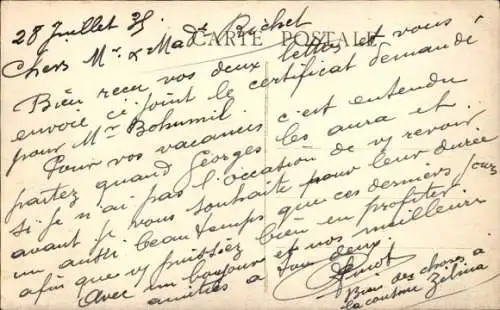 28 Juillet 35
CARTE POSTALE
Chers Mr & Made Buchet
Bien reçu vos deux lettres et vous
envoie ci joint le certificat demandé
pour Mr Bohumil.
Pour vos vacances c'est entendu
partez quand Georges les aura et
si je n'ai pas l'occasion de vs revoir
avant je vous souhaite pour leur durée
un aussi beau temps que ces derniers jours
afin que vs puissiez bien en profiter
Avec un bonjour et nos meilleures
amitiés à tous deux.
Bien des choses à
la cousine Zélina